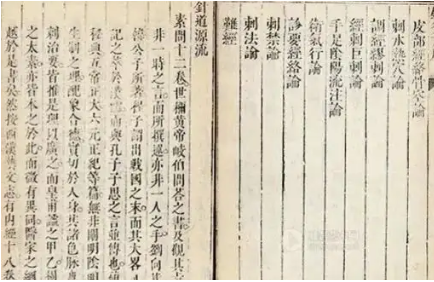 皮部經絡骨空論
刺水熱穴論
調經繆刺論
經刺巨刺論
手足陰陽流注論
衛氣行論
診要經絡論
刺禁論
刺法論
經
針道源流
素問十二卷世稱黃帝岐伯問答之書及觀其
非一時之言而所撰述亦非一人之手劉向
公子所著程子謂出戰國之末而其大畧
記之萃於漢儒而與孔子子思之言並傳也
經與五常正大六元正紀等篇無非闡明陰陽
生制之理配象合德實切於人身其諸色脉
刺治要皆推是理以廣之而皇甫謐之甲乙
之太素亦皆本之於此而微有異同醫家之綱
越於是書矣然按西漢藝文志有内經十八卷